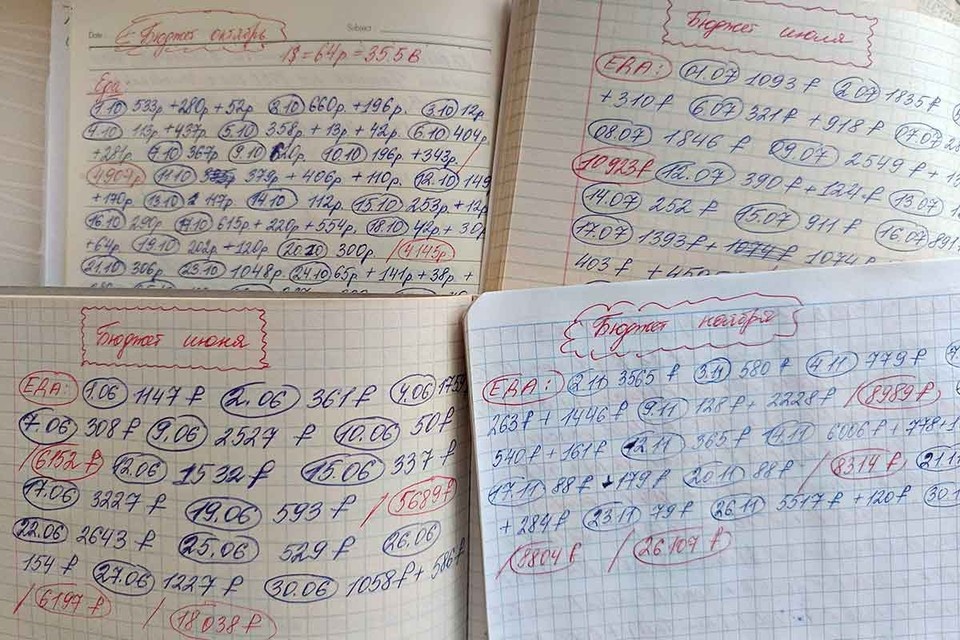 Date:
Subject
Бюджет октябрь
1$ = 64р = 35.5 В
Еда:
1.10 533р + 280р + 52р. 2.10 660р. + 196р. 3.10 12р
4.10 113р + 437р. 5.10 358р + 13р + 42р. 6.10 404р
+ 281р. 7.10 367р. 9.10 620р. 10.10 196р + 343р.
4907р 11.10 379р + 406р + 110р. 12.10 149
+ 170р. 13.10 117р. 14.10 112р. 15.10 253р. + 12р
16.10 290р. 17.10 615р + 220р + 554р. 18.10 42р + 30р
+ 64р. 19.10 202р + 120р. 20.10 300р. 4145р.
21.10 306р. 23.10 1048р. 24.10 65р + 141р + 38р. +
Бюджет июля
ЕДА: 01.07 1093 ₽ 2.07 1835 ₽
+ 310 ₽ 6.07 321 ₽ + 918 ₽ 07.07 28
08.07 1846 ₽ 09.07 2549 ₽ + 13
10923 ₽ 12.07 390 ₽ + 122 ₽ 13.07
14.07 252 ₽ 15.07 911 ₽ 16.07 891
17.07 1393 ₽ + 1074 ₽ 1074 ₽
403 ₽ + 450
Бюджет июня
ЕДА: 1.06 1147 ₽ 2.06 361 ₽ 4.06 1754
7.06 308 ₽ 9.06 2527 ₽ 10.06 50 ₽
6152 ₽ 12.06 1532 ₽ 15.06 337 ₽
17.06 3227 ₽ 19.06 593 ₽ 5689 ₽
22.06 2643 ₽ 25.06 529 ₽ 26.06
154 ₽ 27.06 1227 ₽ 30.06 1058 ₽ + 586 ₽
6197 ₽ 18038 ₽
Бюджет ноября
ЕДА: 2.11 3565 ₽ 3.11 580 ₽ 4.11 779 ₽
263 ₽ + 1446 ₽ 9.11 128 ₽ + 2228 ₽ 8989 ₽
540 ₽ + 161 ₽ 12.11 365 ₽ 14.11 6006 ₽ + 778 + 1
17.11 88 ₽ + 179 ₽ 20.11 88 ₽ 8314 ₽ 21.11
+ 284 ₽ 23.11 79 ₽ 26.11 5517 ₽ + 120 ₽ 30.1
8804 ₽ 26107 ₽